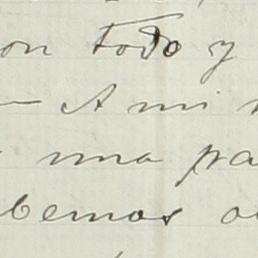 on todo y
— A mi
una pa
bemos